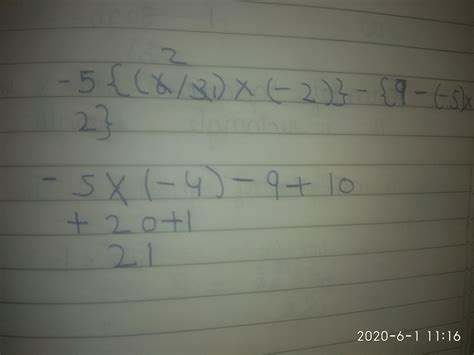 2
-5{(6/3)×(-2)}-{9-(-5)×
2}
-5×(-4)-9+10
+20+1
21
2020-6-1 11:16